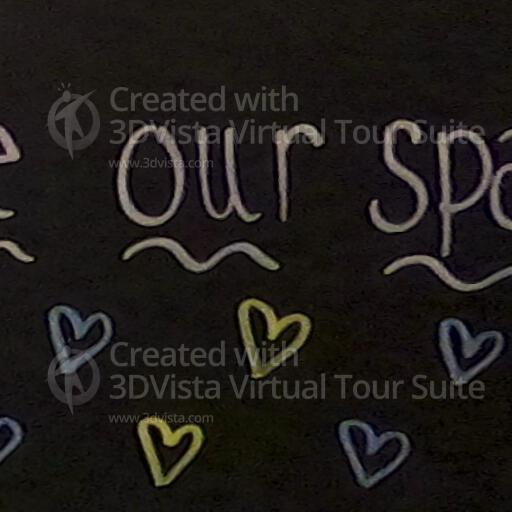 Created with
3DVista Virtual Tour Suite
www.3dvista.com
e our spa
Created with
3DVista Virtual Tour Suite
www.3dvista.com